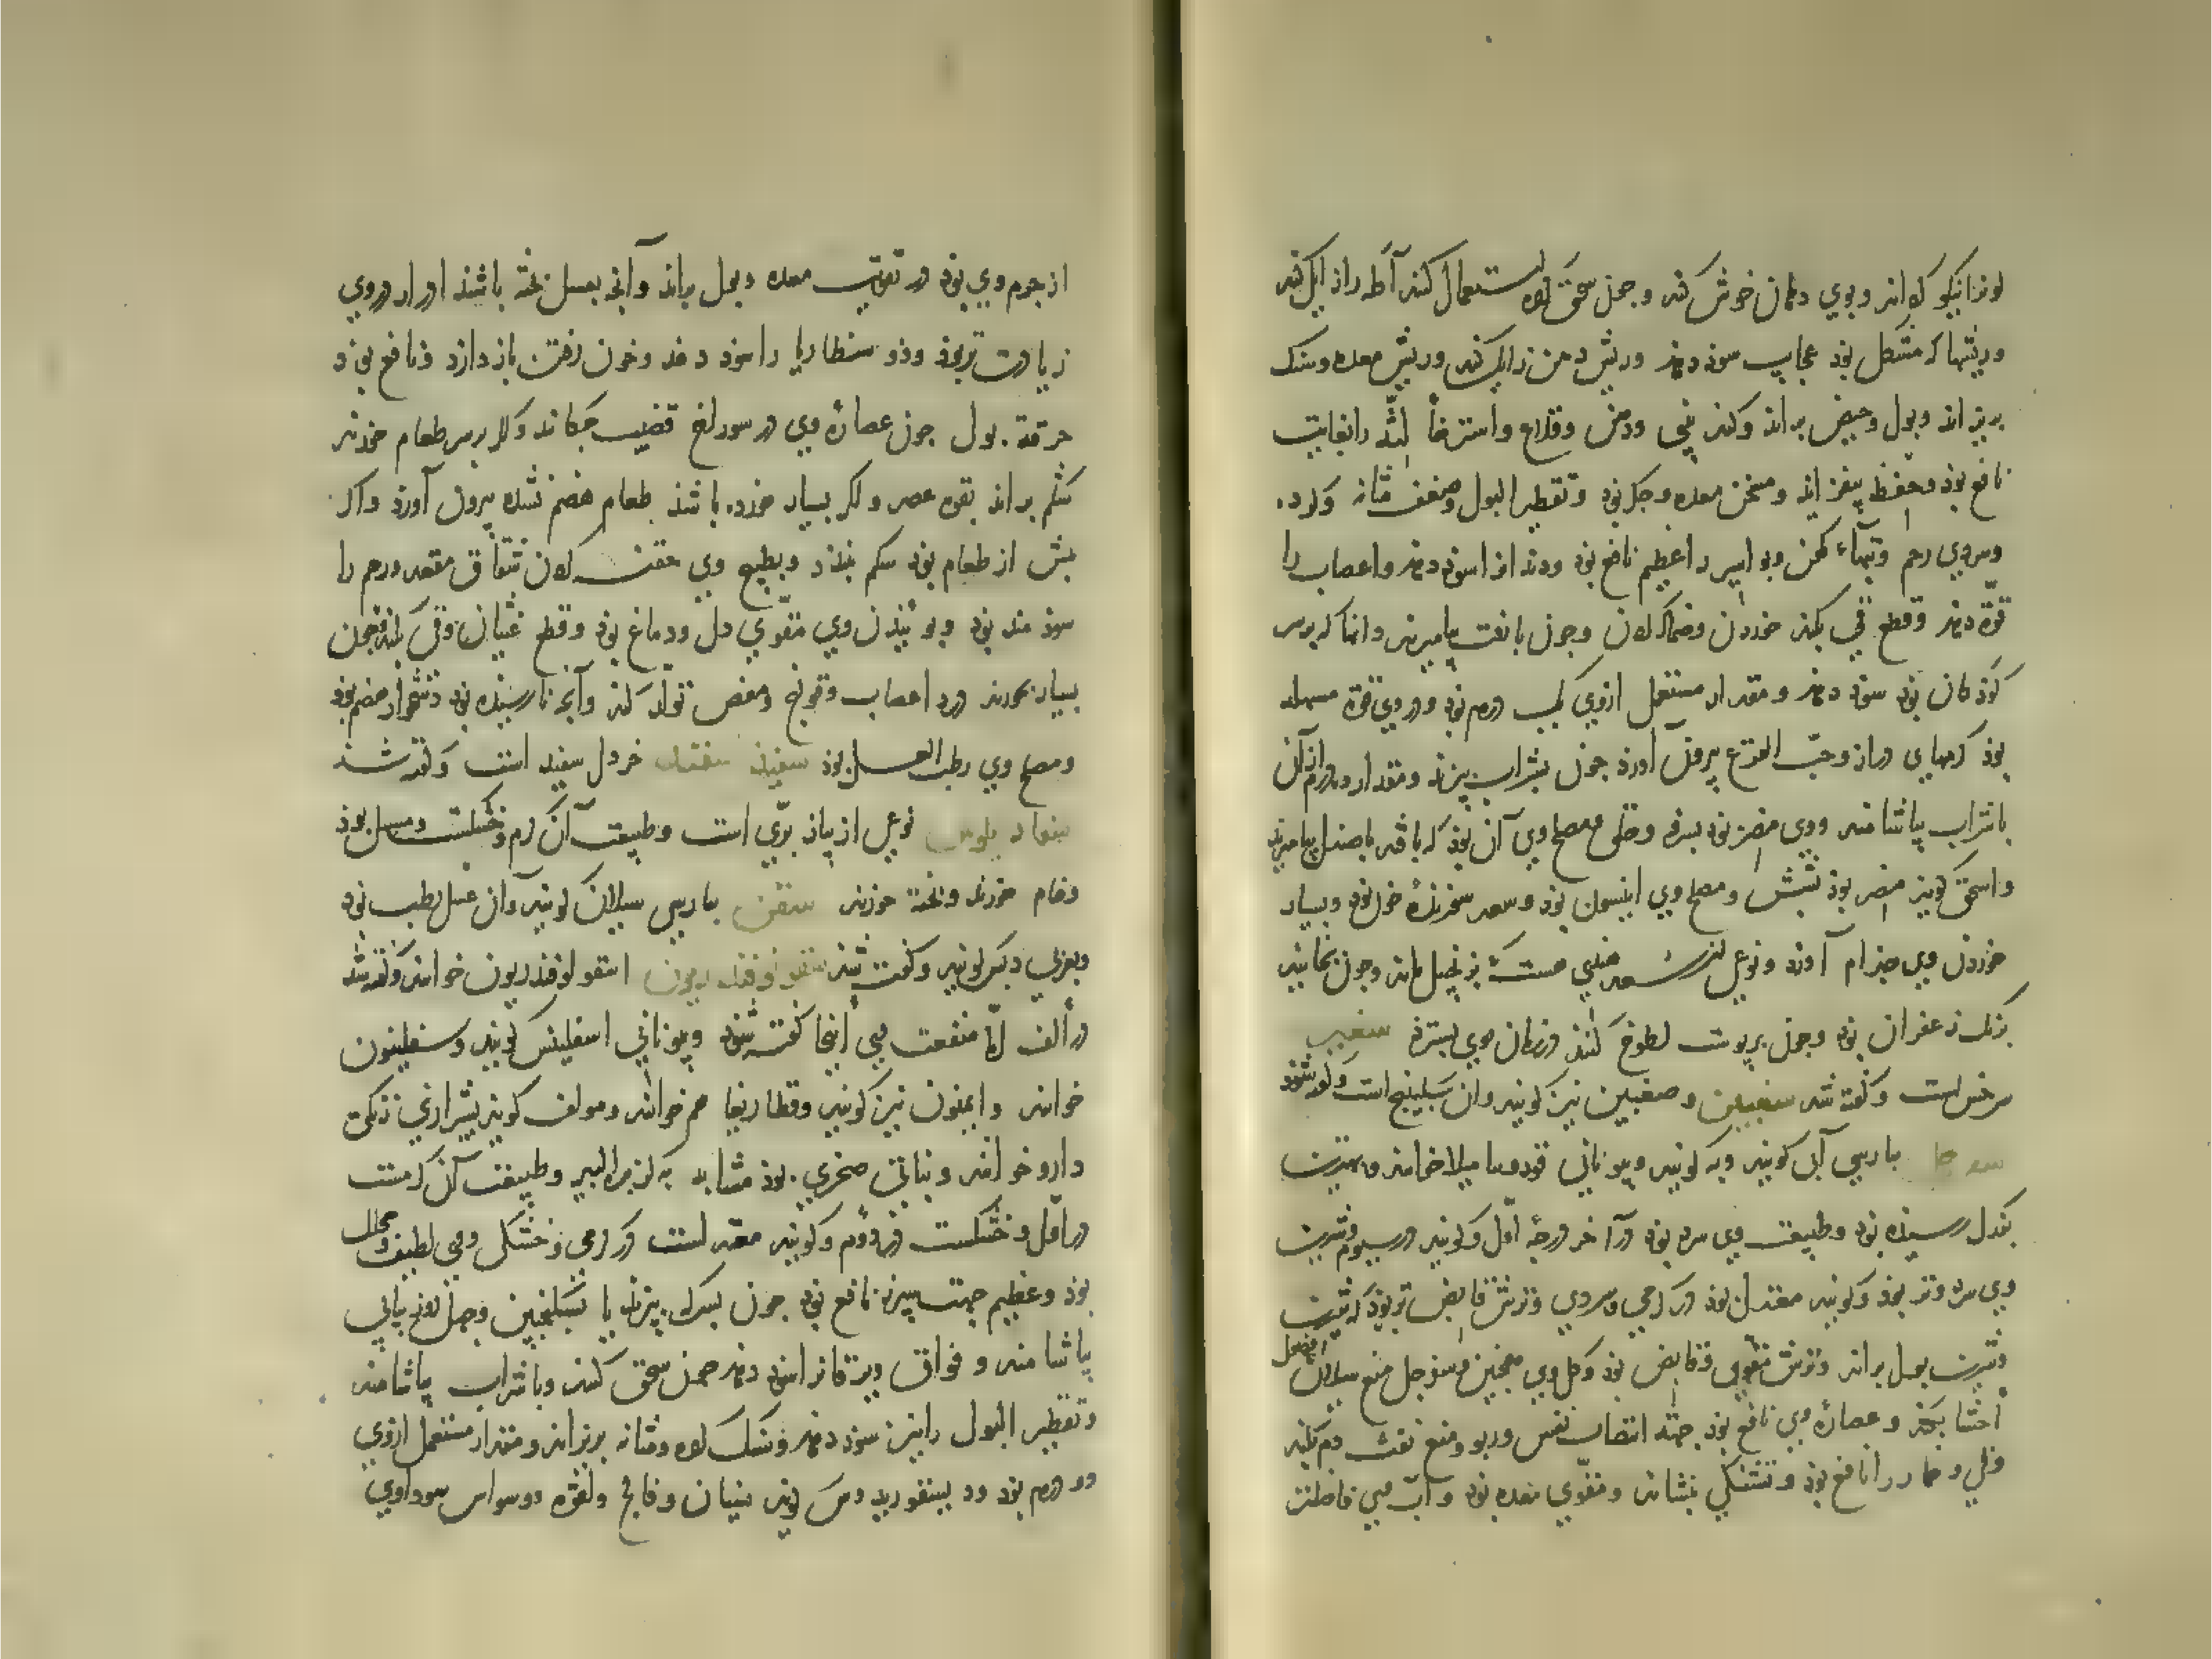 لونرا نیکو گرداند و بوی دهان خوش کند و چون سحق کرده استعمال کنند آکله را زایل کند
و ریشها که مشکل بود عجایب سود دهد و ریش دهن زایل کند و ریش معده و سنگ
بریزاند و بول و حیض براند و کند بینی و دهن و قلاع و استرخا لثه را بغایت
نافع بود و حفظ بیفزاند و مسخن معده و جگر بود و تقطیر البول و ضعف مثانه و گرده
و سردی رحم و تبهاء کهن و بواسیر را عظیم نافع بود و دندانرا سود دهد و اعصاب را
قوة دهد و قطع قی بکند خوردن و ضماد کردن و چون با نفت بیامیزند و انجا که برس
کودکان بود سود دهد و مقدار مستعمل ازوی یک درم بود و در وی قوة مسهله
بود کرمهای دراز و حب القرع بیرون آورد چون بشراب بپزند و مقدار دو درم ازان
با شراب بیاشامند و وی مضر بود بسرفه و حلق و مصلح وی آن بود که با قند یا صندل بیامیزند
و اسحق گوید مضر بود بشش و مصلح وی انیسون بود و سعد سوزندهٔ خون بود و بسیار
خوردن وی جذام آورد و نوعی از سعد هندی هست بزنجبیل ماند و چون بخایند
برنک زعفران بود و چون بر پوست لطوخ کنند در زمان موی بسترد سغبر
سرخس است و گفته شد سغبین و صغبین نیز گویند و ان سکبینج است و گفته شود
سفرجل بپارسی آبی گویند و به گویند و بیونانی قودومیا میلا خوانند و بهترین
بکمال رسیده بود و طبیعت وی سرد بود در آخر درجهٔ اول و گویند در سیوم و شیرین
وی سرد و تر بود و گویند معتدل بود در گرمی و سردی و ترش قابض تر بود که شیرین
و شیرین بول براند و ترش مقوی و قابض بود و گل وی همچنین و سفرجل منع سیلان فضول
احشا بکند و عصارهٔ وی نافع بود جهة انتصاب نفس و ربو و منع نفث دم بکند
و قی و خمار را نافع بود و تشنگی بنشاند و مقوی معده بود و آب وی فاضلتر
از جرم وی بود در تقویت معده و بول براند و آنچه بعسل پخته باشند ادرار در وی
زیادت تر بود و ذوسنطاریا را سود دهد و خون رفتن باز دارد و نافع بود
حرقة بول چون عصارهٔ وی در سوراخ قضیب چکانند و اگر بر سر طعام خورند
شکم براند بقوه عصر و اگر بسیار خورده باشند طعام هضم نشده بیرون آورد و اگر
پیش از طعام بود شکم ببندد و بطبیخ وی حقنه کردن شقاق مقعد و رحم را
سود مند بود و بوئیدن وی مقوی دل و دماغ بود و قطع غثیان و قی بکند و چون
بسیار خورند درد اعصاب و قولنج و مغص تولد کند و آنچه نارسیده بود دشخوار هضم بود
و مصلح وی رطب العسل بود سفید سفند خردل سفید است و گفته شد
سفاد بلوس نوعی از پیاز بری است و طبیعت آن گرم و خشکست و مسهل بود
و خام خورند و پخته خورند سقر بپارسی سیلان گویند و آن عسل رطب بود
و بعربی دبس گویند و گفته شد سقولوقندریون اسقولوقندریون خوانند و گفته شد
در ألف اما منفعت وی اینجا گفته شود و بیونانی اسفلینس گویند و سفلینون
خوانند و ایمنون نیز گویند و قطاریفا هم خوانند و مولف گوید بشیرازی زنگی
دارو خوانند و نباتی صخری بود مشابه به کزبره البیر و طبیعت آن گرمست
در اول و خشکست در دوم و گویند معتدلست در گرمی و خشکی و وی لطیف و محلل
بود و عظیم جهت سپرز نافع بود چون بسرکه بپزند یا بسکنجبین و چهل روز پیاپی
بیاشامند و فواق و یرقانرا سود دهد چون سحق کنند و با شراب بیاشامند
و تقطیر البول را نیز سود دهد و سنک گرده و مثانه بریزاند و مقدار مستعمل ازوی
دو درم بود و دیسقوریدوس گوید نسیان و فالج و لقوه و وسواس سوداوی